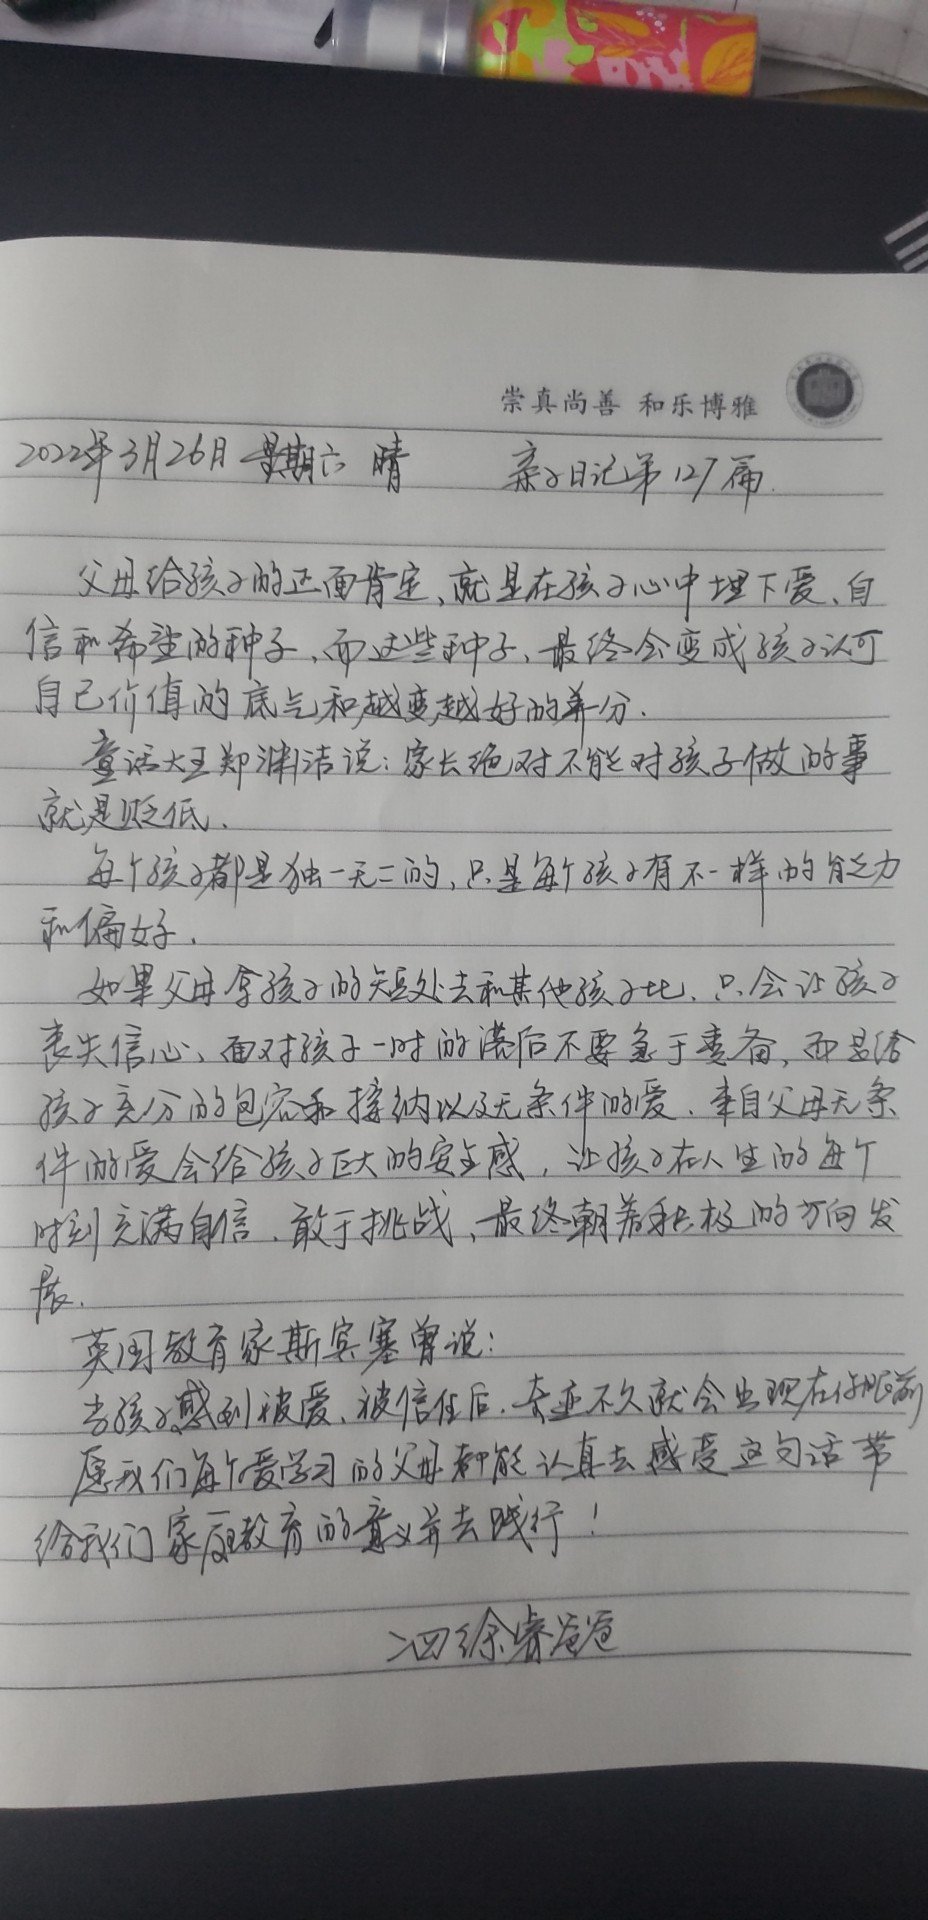 崇真尚善 和乐博雅
2022年3月26日 星期六 晴 亲子日记第127篇.
父母给孩子的正面肯定、就是在孩子心中埋下爱、自
信和希望的种子、而这些种子、最终会变成孩子认可
自己价值的底气和越变越好的养分.
童话大王郑渊洁说:家长绝对不能对孩子做的事
就是贬低.
每个孩子都是独一无二的,只是每个孩子有不一样的能力
和偏好.
如果父母拿孩子的短处去和其他孩子比.只会让孩子
丧失信心、面对孩子一时的滞后不要急于责备,而是给
孩子充分的包容和接纳以及无条件的爱.来自父母无条
件的爱会给孩子巨大的安全感,让孩子在人生的每个
时刻充满自信、敢于挑战、最终朝着积极的方向发
展.
英国教育家斯宾塞曾说:
当孩子感到被爱、被信任后.奇迹不久就会出现在你眼前
愿我们每个爱学习的父母都能认真去感受这句话带
给我们家庭教育的意义并去践行!
二四徐睿爸爸